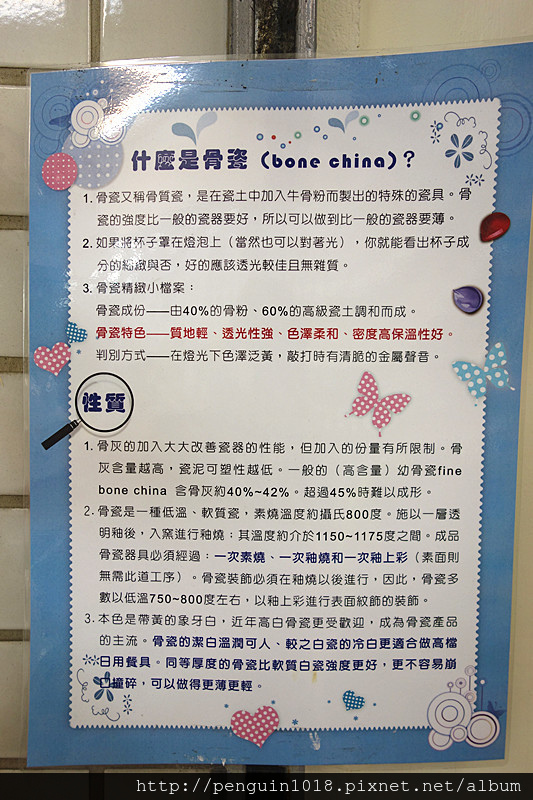 什麼是骨瓷（bone china）？
1. 骨瓷又稱骨質瓷，是在瓷土中加入牛骨粉而製出的特殊的瓷具。骨
瓷的強度比一般的瓷器要好，所以可以做到比一般的瓷器要薄。
2. 如果將杯子罩在燈泡上（當然也可以對著光），你就能看出杯子成
分的細緻與否，好的應該透光較佳且無雜質。
3. 骨瓷精緻小檔案：
骨瓷成份——由40%的骨粉、60%的高級瓷土調和而成。
骨瓷特色——質地輕、透光性強、色澤柔和、密度高保溫性好。
判別方式——在燈光下色澤泛黃，敲打時有清脆的金屬聲音。
性質
1. 骨灰的加入大大改善瓷器的性能，但加入的份量有所限制。骨
灰含量越高，瓷泥可塑性越低。一般的（高含量）幼骨瓷fine
bone china 含骨灰約40%~42%。超過45%時難以成形。
2. 骨瓷是一種低溫、軟質瓷，素燒溫度約攝氏800度。施以一層透
明釉後，入窯進行釉燒：其溫度約介於1150~1175度之間。成品
骨瓷器具必須經過：一次素燒、一次釉燒和一次釉上彩（素面則
無需此道工序）。骨瓷裝飾必須在釉燒以後進行，因此，骨瓷多
數以低溫750~800度左右，以釉上彩進行表面紋飾的裝飾。
3. 本色是帶黃的象牙白，近年高白骨瓷更受歡迎，成為骨瓷產品
的主流。骨瓷的潔白溫潤可人、較之白瓷的冷白更適合做高檔
日用餐具。同等厚度的骨瓷比軟質白瓷強度更好，更不容易崩
口撞碎，可以做得更薄更輕。
http://penguin1018.pixnet.net/album